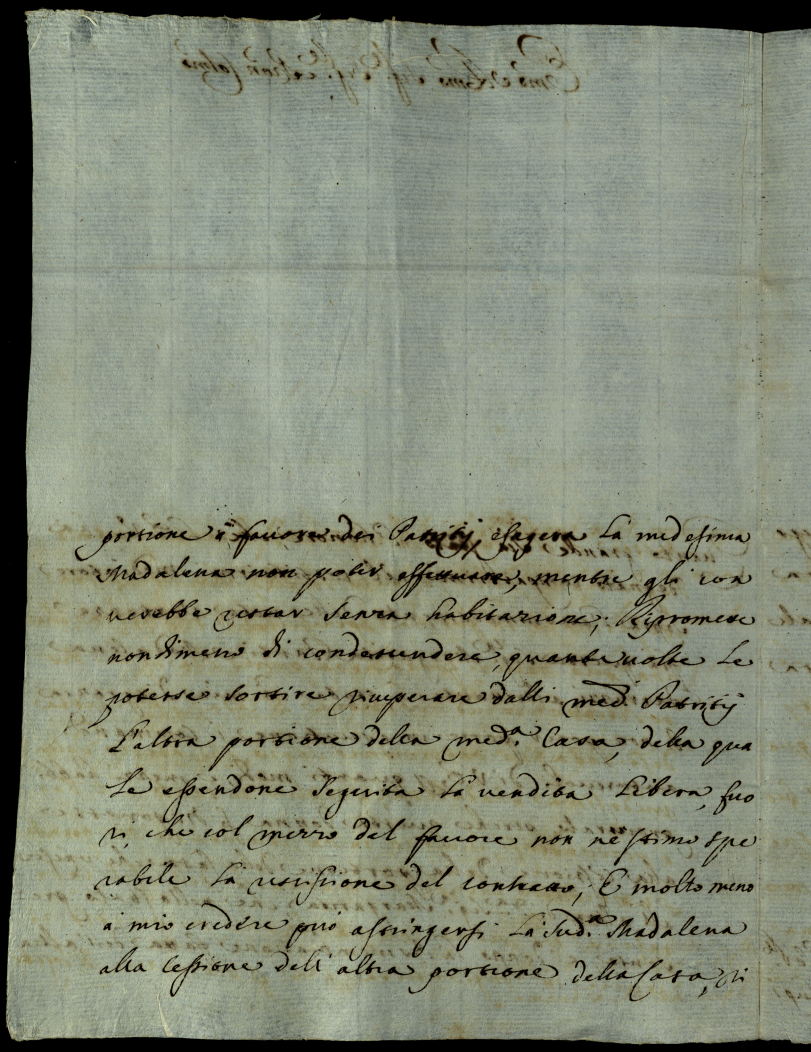 portione à fauore dei Patritij esagera la medesima
Madalena non poter effettuare, mentre gli con
uerebbe restar senza habitazione; Ripromese
nondimeno di condesendere, quante uolte le
potesse sortire ricuperare dalli med.i Patritij
L'altra portione della med.a Casa, della qua
le essendone seguita la vendita libera, fuo
ri, che col mezzo del fauore non né stimo spe
rabile la rescissione del contratto; E molto meno
à mio credere può astringersi La Sud.a Madalena
alla cessione dell'altra portione della Casa,